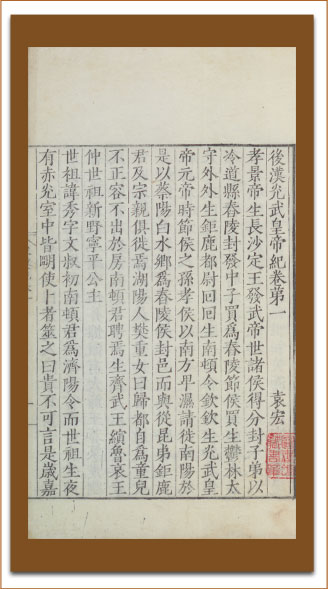 後漢光武皇帝紀卷第一 袁宏
孝景帝生長沙定王發武帝世諸侯得分封子弟以
冷道縣舂陵封發中子買爲舂陵節侯買生鬱林太
守外外生鉅鹿都尉回回生南頓令欽欽生光武皇
帝元帝時節侯之孫孝侯以南方卑濕請徙南陽於
是以蔡陽白水鄉爲舂陵侯封邑而與從昆弟鉅鹿
君及宗親俱徙焉湖陽人樊重女曰歸都自爲童兒
不正容不出於房南頓君聘焉生齊武王縯魯哀王
仲世祖新野寧平公主
世祖諱秀字文叔初南頓君爲濟陽令而世祖生夜
有赤光室中皆明使卜者筮之曰貴不可言是歲嘉